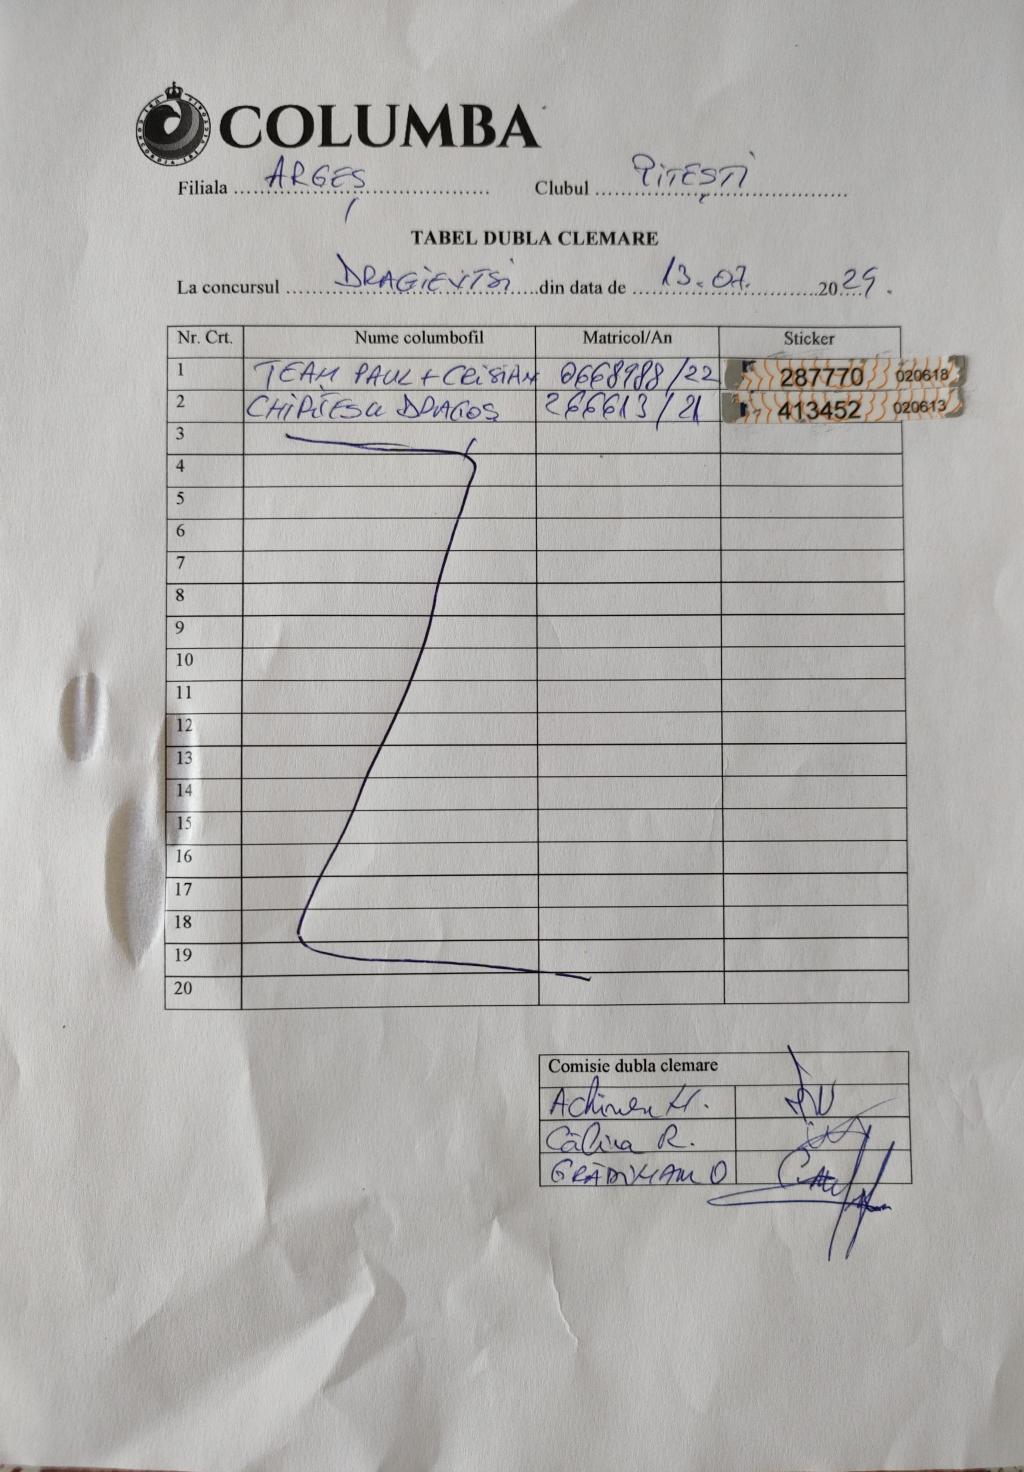 COLUMBA
Filiala ARGEȘ Clubul PITEȘTI
TABEL DUBLA CLEMARE
La concursul din data de 13.07. 2024.
Nr. Crt. Nume columbofil Matricol/An Sticker
1 TEAM PAUL + CRISTIAN 0668988/22 287770 020618
2 CHIRIȚESCU DRAGOȘ 266613/21 413452 020613
3
4
5
6
7
8
9
10
11
12
13
14
15
16
17
18
19
20
Comisie dubla clemare
H.
Călina R.